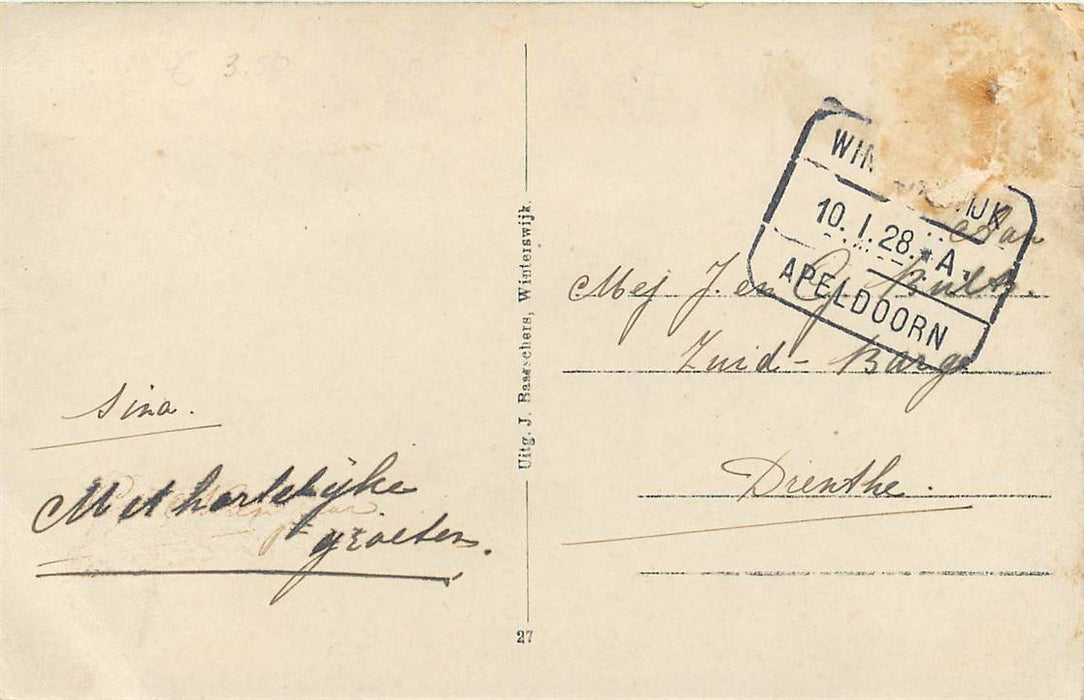 € 3.50
WIN IJK
10. I. 28. * A.
APELDOORN
Aan
Mej J. en Bulk.
Zuid-Barge
Drenthe.
Sina.
Met hartelijke
groeten.
Uitg. J. Raasschers, Winterswijk.
27